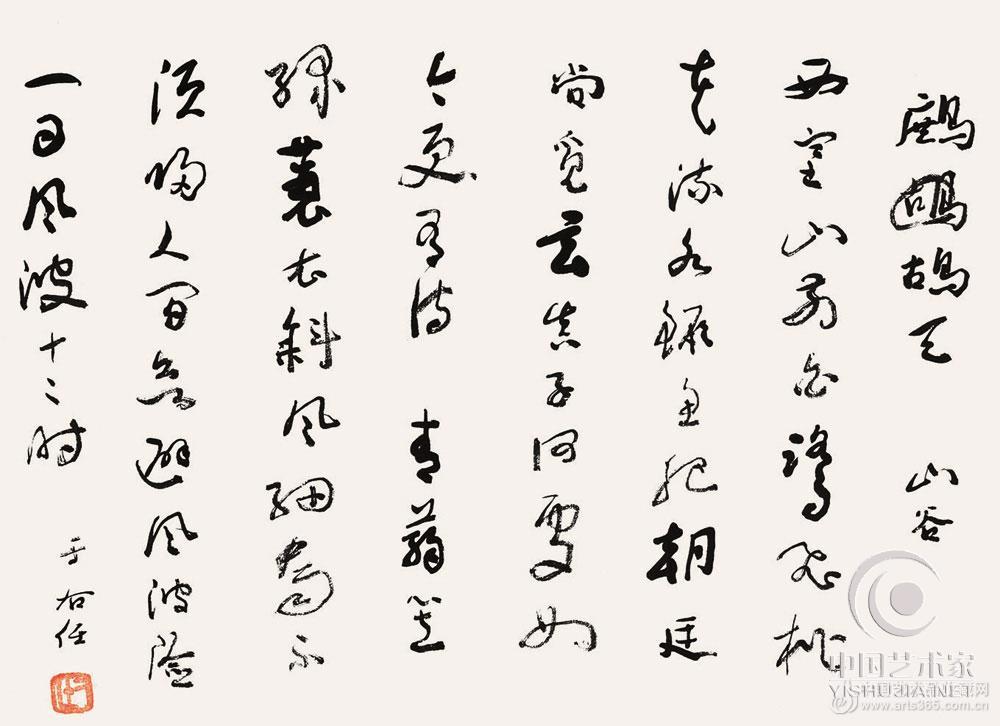 鷓鴣鴣天 山谷
西塞山前白鷺飛桃
花流水鱖魚肥朝廷
尚覓玄真子何處如
今更有詩 青蒻笠
綠蓑衣斜風細雨不
須歸人間無避風波險
一日風波十二時
于右任
中国艺术家
YISHUJIA.NET
www.arts365.com.cn